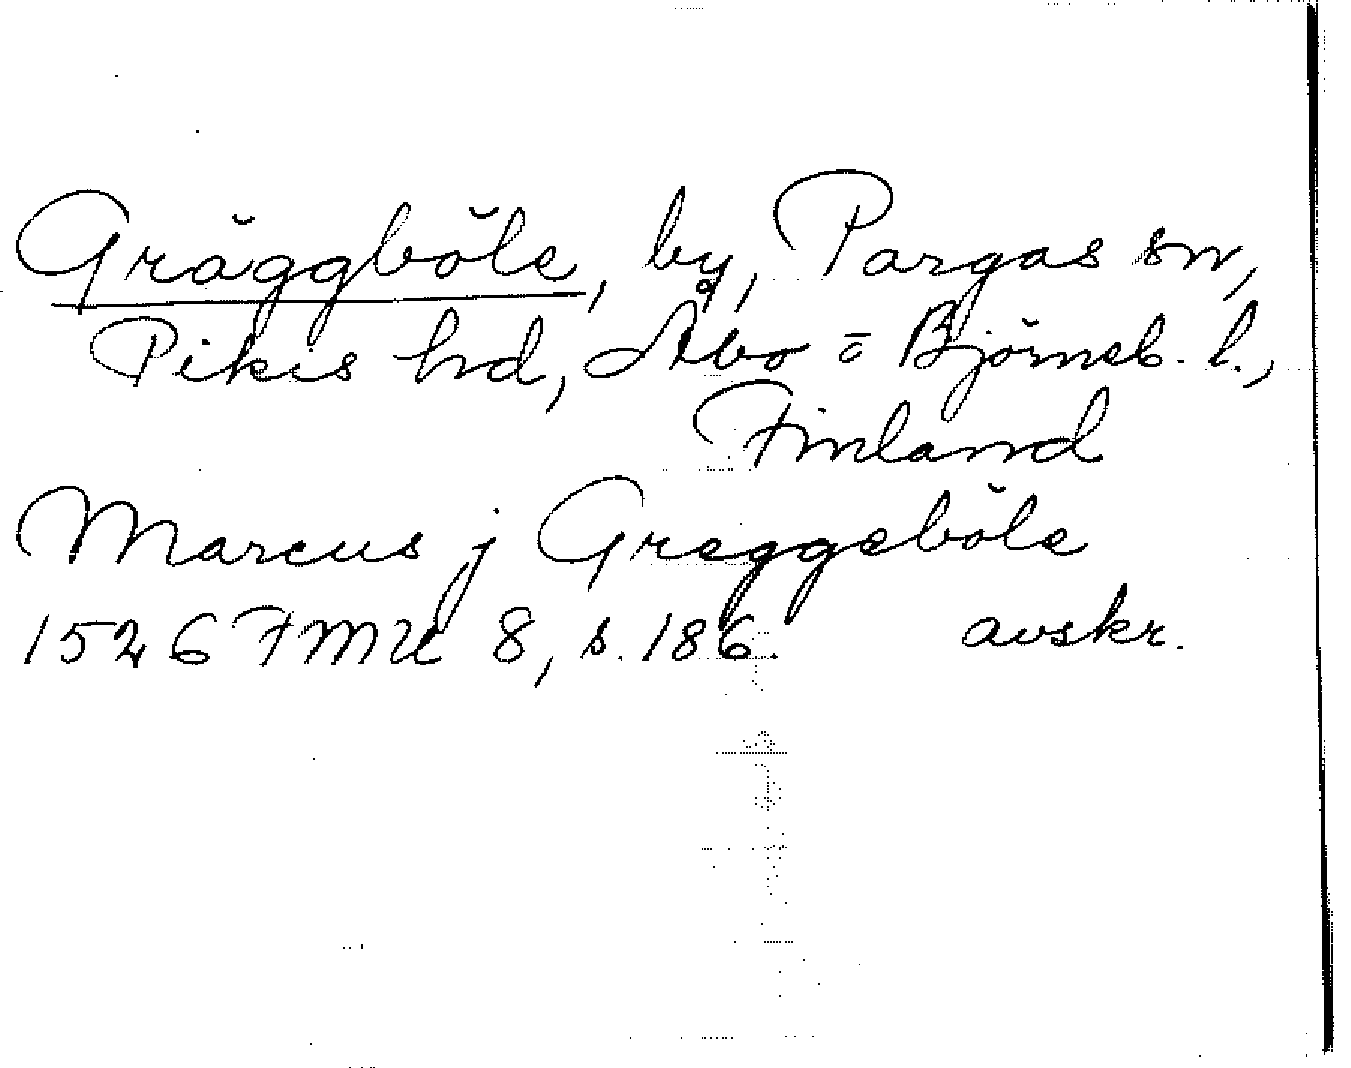 Gräggböle, by, Pargas sn,
Pikis hd, Åbo o Björneb. l.,
Finland
Marcus j Greggeböle
1526 FMU 8, s. 186. avskr.